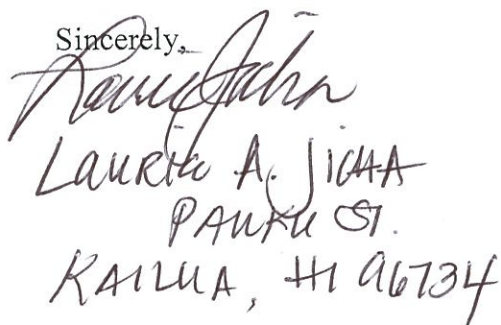 Sincerely,
Laurie A. JICHA
ST.
KAILUA, HI 96734